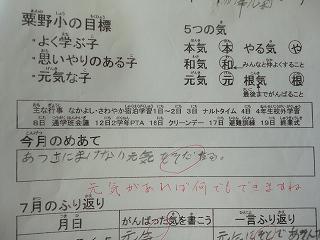 粟野小の目標
・よく学ぶ子
・思いやりのある子
・元気な子
5つの気
本気 やる気
和気 みんなと仲よくすること
元気 根気
最後までがんばること
主な行事 なかよし・さわやか宿泊学習1日～2日 3日 ナルトタイム 4日 4年生校外学習
8日 通学班会議 12日2学年PTA 16日 クリーンデー 17日 避難訓練 19日 終業式
今月のめあて
あつさにまけない元気をそだてる。
元気があれば何でもできますね
7月のふり返り
月日
がんばった気を書こう
一言ふり返り